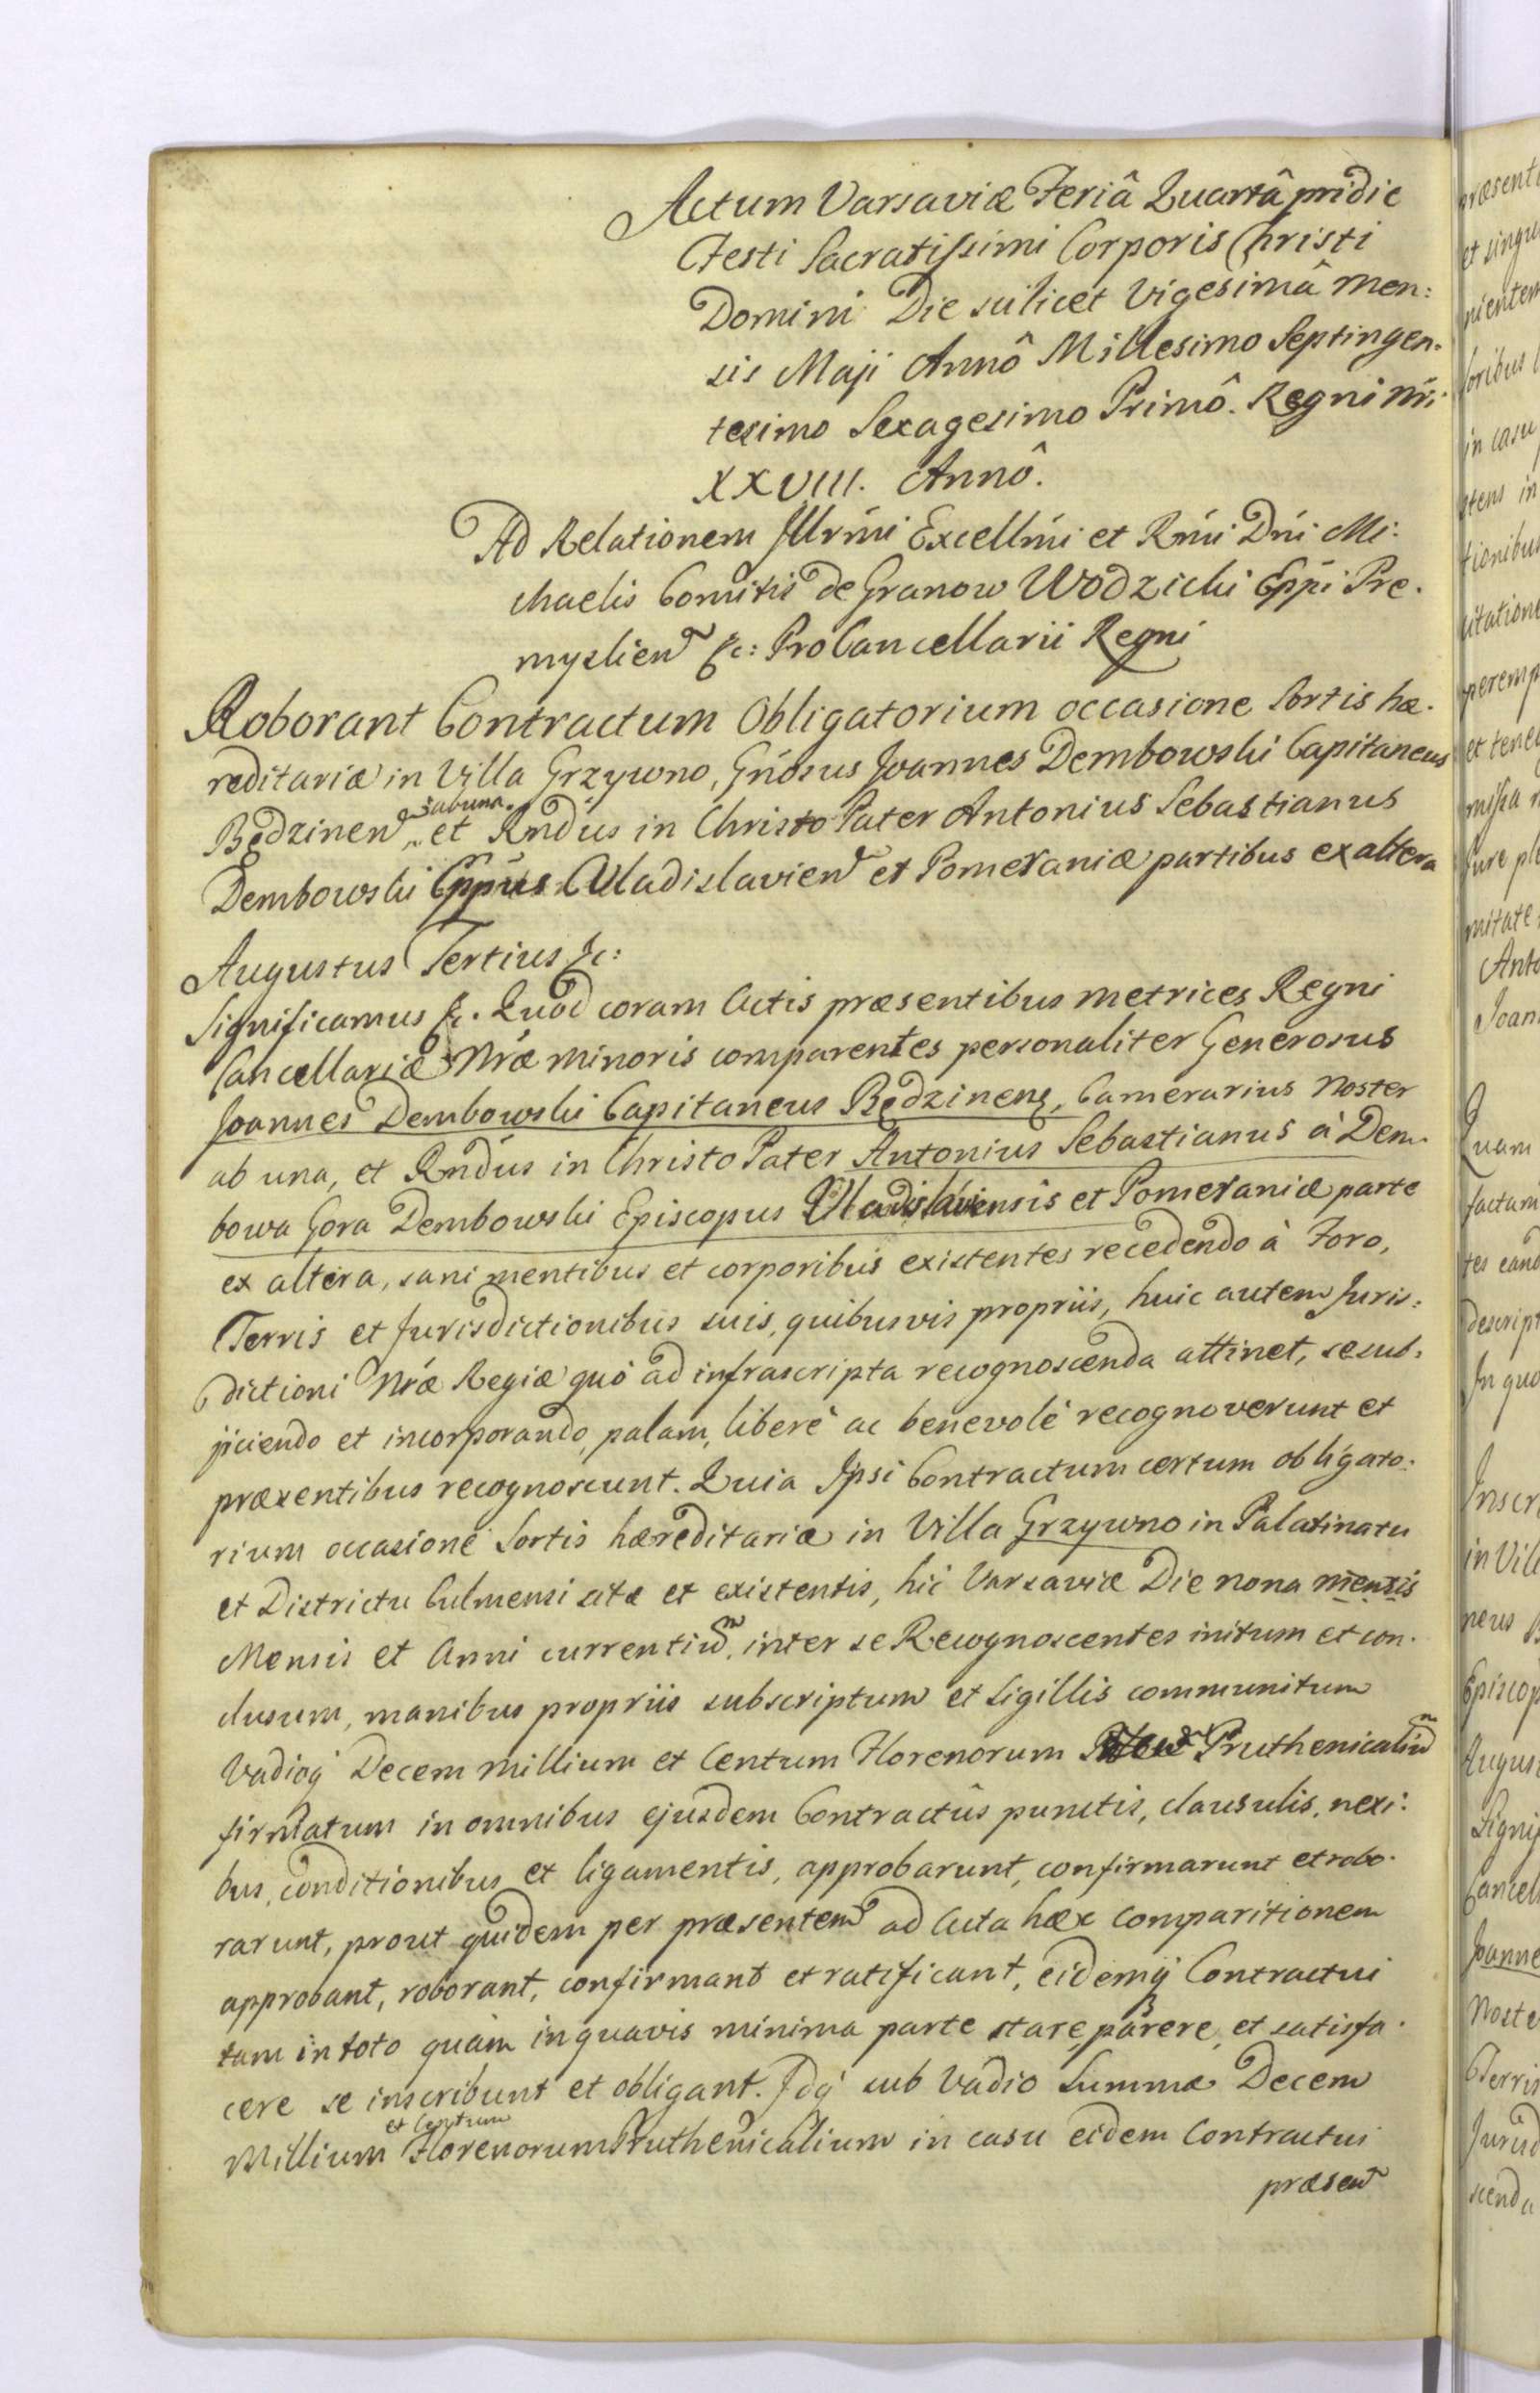 Actum Varsaviæ Feriâ Quartâ pridie
Festi Sacratissimi Corporis Christi
Domini Die scilicet Vigesimâ Men:
sis Maji Annô Millesimo Septingen.
tesimo Sexagesimo Primô. Regni Nri.
XXVIII. Annô.
Ad Relationem Illrmi Excellmi et Rmi Dni Mi:
chaelis Comitis de Granow Wodzicki Eppi Pre.
myslien &c: ProCancellarii Regni
Roborant Contractum Obligatorium occasione Sortis hæ.
reditariæ in Villa Grzywno, Gnosus Joannes Dembowski Capitaneus
ab una.
Będzinen, et Rndus in Christo Pater Antonius Sebastianus
Dembowski Eppus Vladislavien et Pomeraniæ partibus ex altera
Augustus Tertius &c:
Significamus &c. Quod coram Actis præsentibus Metrices Regni
Cancellariæ Nræ Minoris comparentes personaliter Generosus
Joannes Dembowski Capitaneus Będzinens, Camerarius Noster
ab una, et Rndus in Christo Pater Antonius Sebastianus à Dem.
bowa Gora Dembowski Episcopus Vladislaviensis et Pomeraniæ parte
ex altera, sani mentibus et corporibus existentes recedendo à Foro,
Terris et Jurisdictionibus suis, quibusvis propriis, huic autem Juris:
dictioni Nræ Regiæ quò ad infrascripta recognoscenda attinet, se sub:
jiciendo et incorporando, palam, liberè ac benevolè recognoverunt et
præsentibus recognoscunt. Quia Ipsi Contractum certum obligato:
rium occasione Sortis hæreditariæ in Villa Grzywno in Palatinatu
et Districtu Culmensi sitæ et existentis, hic Varsaviæ Die nona mensis
Mensis et Anni currentium inter se Recognoscentes initum et con.
clusum, manibus propriis subscriptum et Sigillis communitum
Vadioq Decem Millium et Centum Florenorum Pruthenicalium
firmatum in omnibus ejusdem Contractûs punctis, clausulis, nexi:
bus, conditionibus et ligamentis, approbarunt, confirmarunt et robo.
rarunt, prout quidem per præsentem ad Acta hæc Comparitionem
approbant, roborant, confirmant et ratificant, eidemq Contractui
tam in toto quàm in quavis minima parte stare, parere, et satisfa.
cere se inscribunt et obligant. Idq sub Vadio Summæ Decem
et Centum
Millium Florenorum Pruthenicalium in casu eidem Contractui
præsen